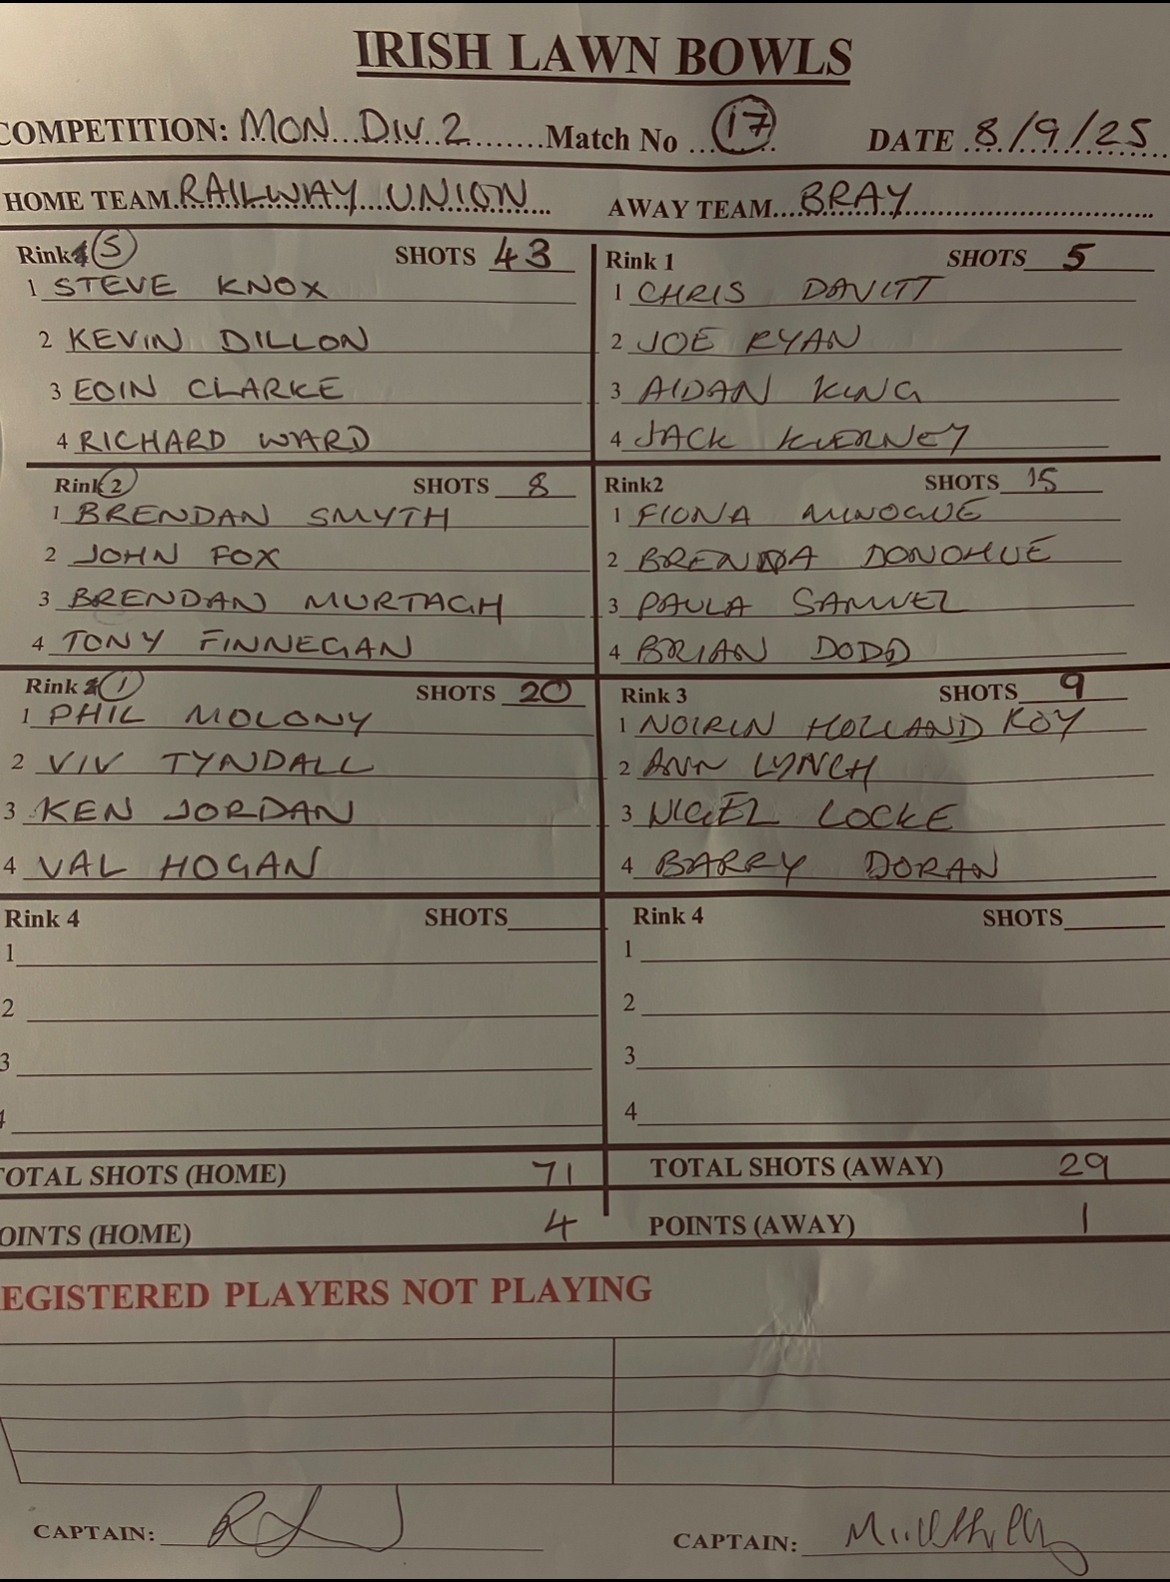 IRISH LAWN BOWLS
COMPETITION: MON DIV 2 Match No 17 DATE 8/9/25
HOME TEAM RAILWAY UNION AWAY TEAM BRAY
Rink 5 SHOTS 43
1 STEVE KNOX
2 KEVIN DILLON
3 EOIN CLARKE
4 RICHARD WARD
Rink 1 SHOTS 5
1 CHRIS DAVITT
2 JOE RYAN
3 AIDAN KING
4 JACK KIERNEY
Rink 2 SHOTS 8
1 BRENDAN SMYTH
2 JOHN FOX
3 BRENDAN MURTAGH
4 TONY FINNEGAN
Rink2 SHOTS 15
1 FIONA MINOGUE
2 BRENDA DONOHUE
3 PAULA SAMUEL
4 BRIAN DODD
Rink 1 SHOTS 20
1 PHIL MOLONY
2 VIV TYNDALL
3 KEN JORDAN
4 VAL HOGAN
Rink 3 SHOTS 9
1 NOIRIN HOLLAND ROY
2 ANN LYNCH
3 NIGEL LOCKE
4 BARRY DORAN
Rink 4 SHOTS
1
2
3
4
Rink 4 SHOTS
1
2
3
4
TOTAL SHOTS (HOME) 71 TOTAL SHOTS (AWAY) 29
POINTS (HOME) 4 POINTS (AWAY) 1
EGISTERED PLAYERS NOT PLAYING
CAPTAIN: CAPTAIN: